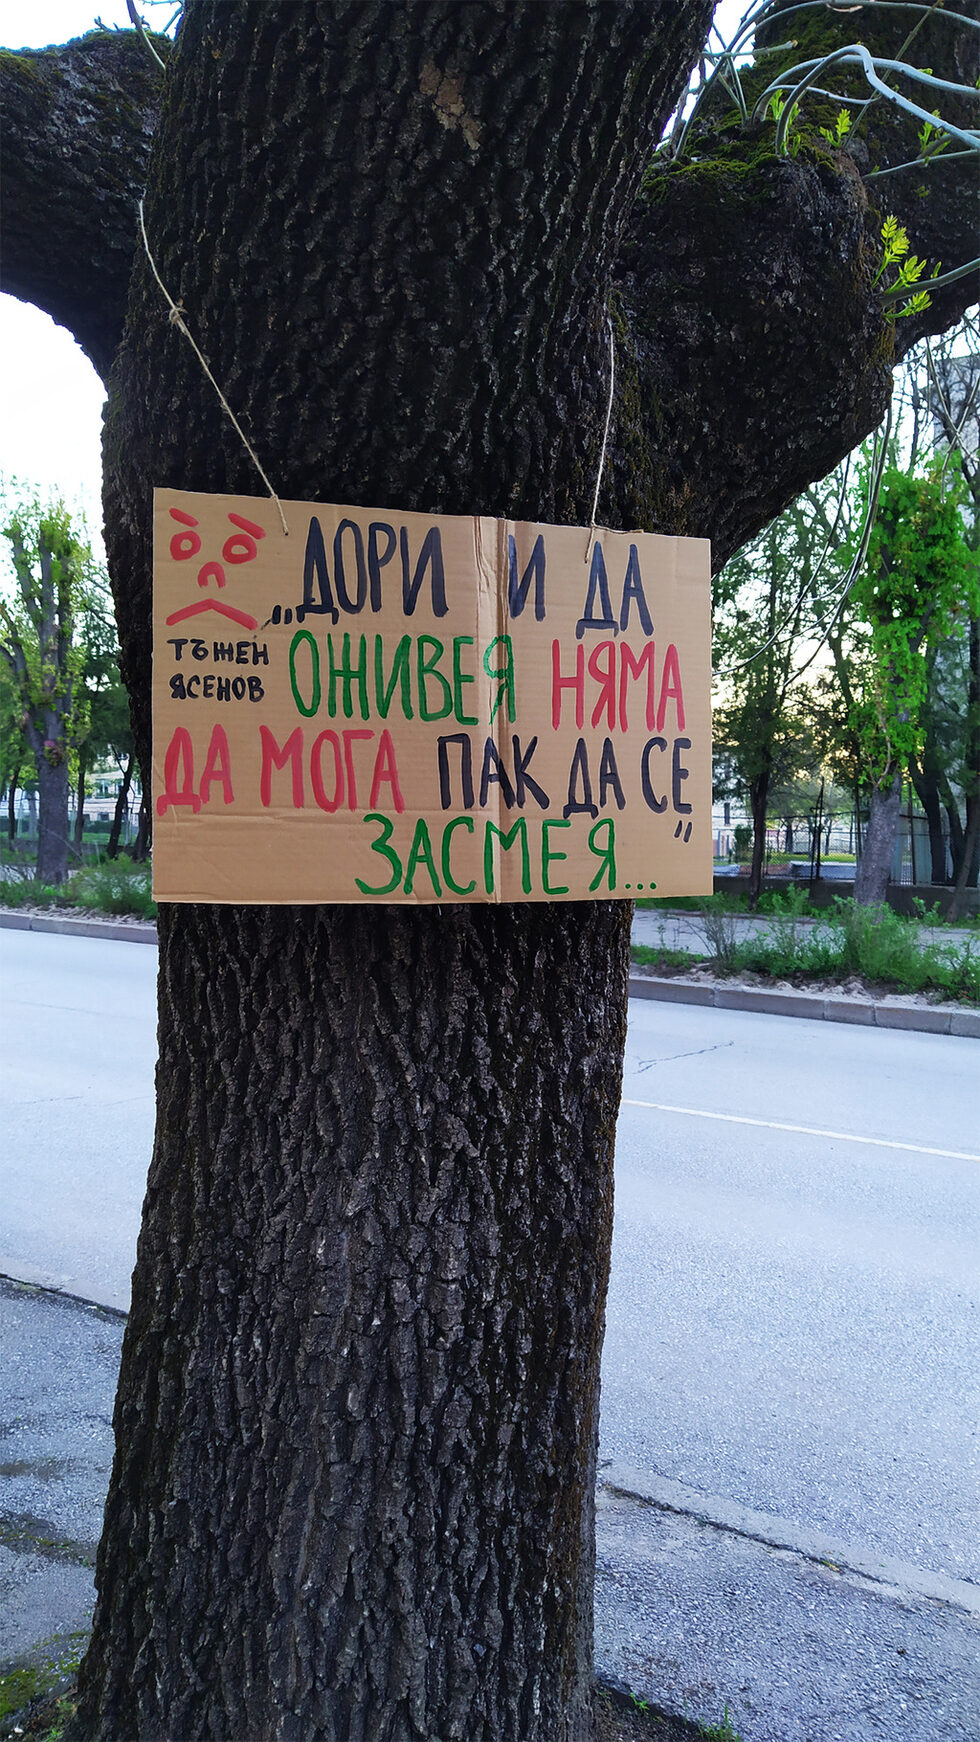 ТЪЖЕН
ЯСЕНОВ
„ДОРИ И ДА
ОЖИВЕЯ НЯМА
ДА МОГА ПАК ДА СЕ
ЗАСМЕЯ..."